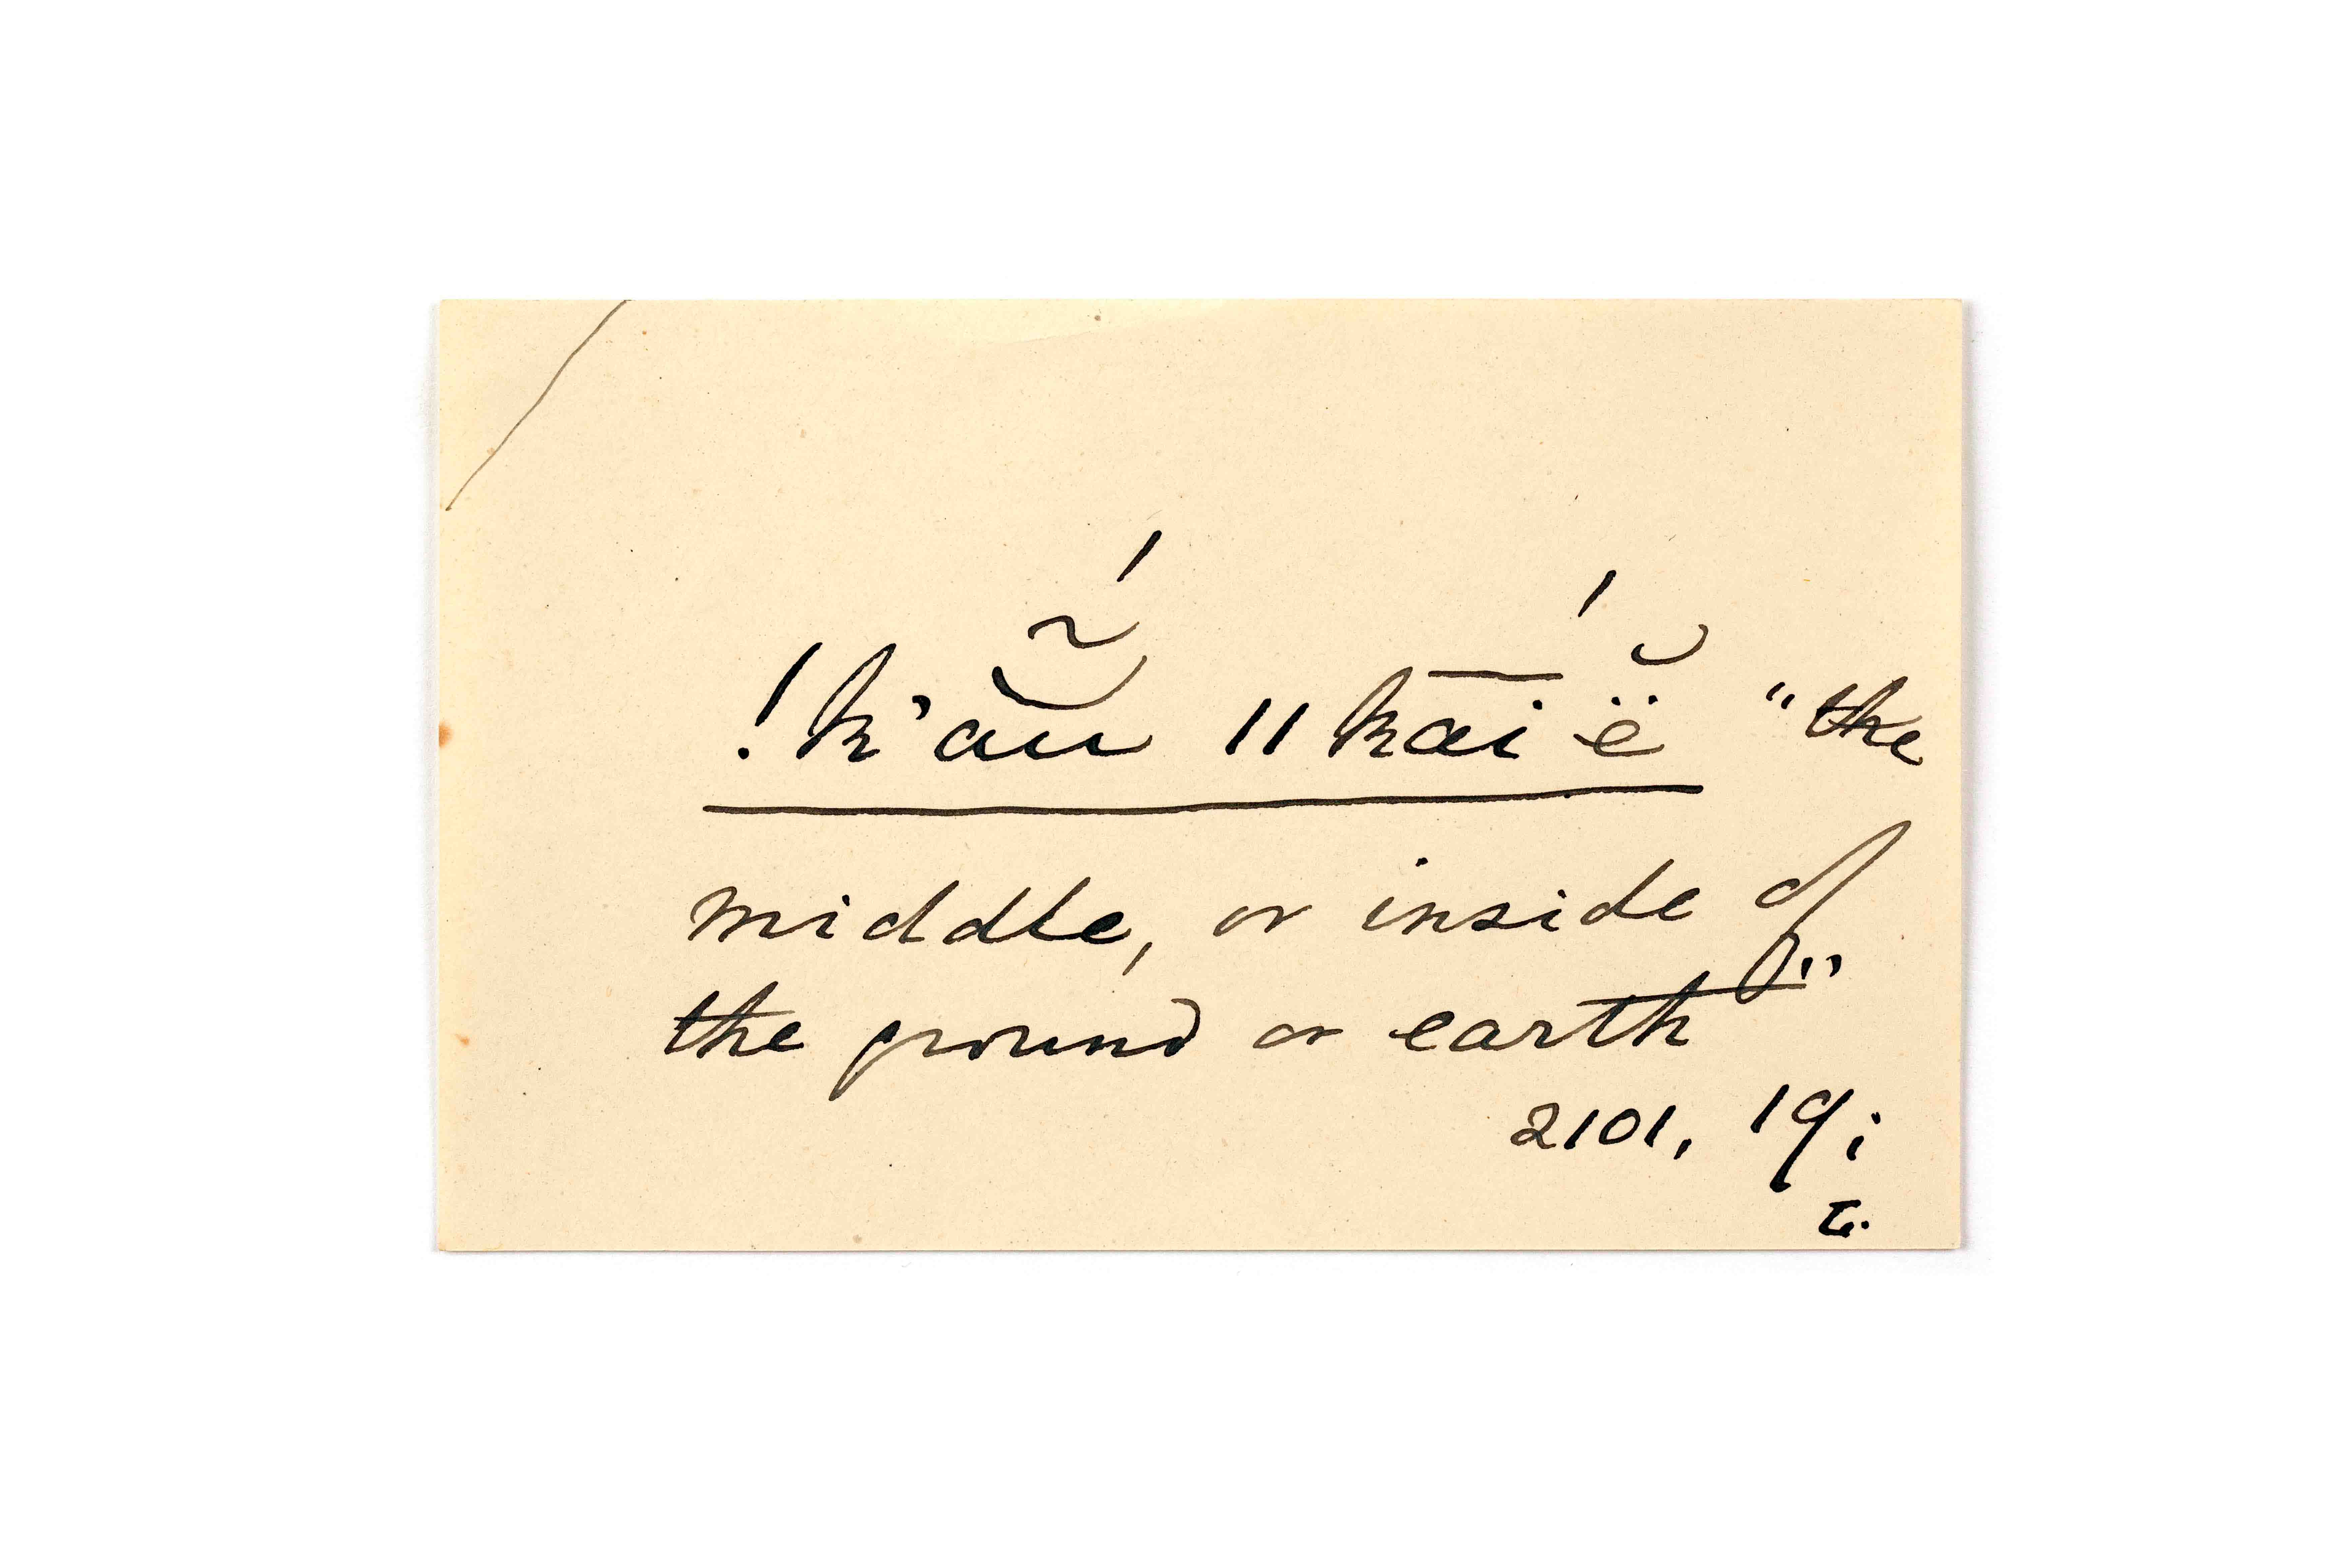 !k'ăṹ̮ ǁkā́ĭë̆ "the
middle, or inside of
the ground or earth"
2101, 19;
L.